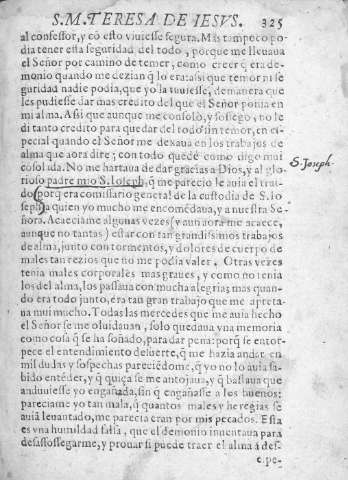 S. M. TERESA DE IESVS. 325
al confessor, y cõ esto viuiesse segura. Mas tampoco po
dia tener esta seguridad del todo, porque me lleuaua
el Señor por camino de temer, como creer q̃ era de-
monio quando me dezian q̃ lo era: assi que temor ni se
guridad nadie podia, que yo la tuuiesse, demanera que
les pudiesse dar mas credito del que el Señor ponia en
mi alma. Assi que aunque me consolò, y sossego, no le
di tanto credito para quedar del todo sin temor, en es-
pecial quando el Señor me dexaua en los trabajos de
alma que aora dire; con todo quedè como digo mui
cosolada. No me hartaua de dar gracias a Dios, y al glo
rioso padre mio S. Ioseph, q̃ me parecio le auia el trai-
do, porq̃ era comissario general de la custodia de S. Io
seph, a quien yo mucho me encomẽdaua, y a nuestra Se
ñora. Acaeciame algunas vezes (y aun aora me acaece,
aunque no tantas) estar con tan grandissimos trabajos
de alma, junto con tormentos, y dolores de cuerpo de
males tan rezios que no me podia valer. Otras vezes
tenia males corporales mas graues, y como no tenia
los del alma, los passaua con mucha alegria; mas quan-
do era todo junto, era tan gran trabajo que me apreta-
ua mui mucho. Todas las mercedes que me auia hecho
el Señor se me oluidauan, solo quedaua vna memoria
como cosa q̃ se ha soñado, para dar pena: porq̃ se entor-
pece el entendimiento desuerte, q̃ me hazia andar en
mil dudas y sospechas pareciẽdome, q̃ yo no lo auia sa-
bido entẽder, y q̃ quiça se me antojaua, y q̃ bastaua que
anduuiesse yo engañada, sin q̃ engañasse a los buenos:
pareciame yo tan mala, q̃ quantos males y heregias se
auiã leuantado, me parecia eran por mis pecados. Esta
es vna humildad falsa, que el demonio inuentaua para
desassossegarme, y prouar si puede traer el alma a des-
e.pe-
S. Joseph.